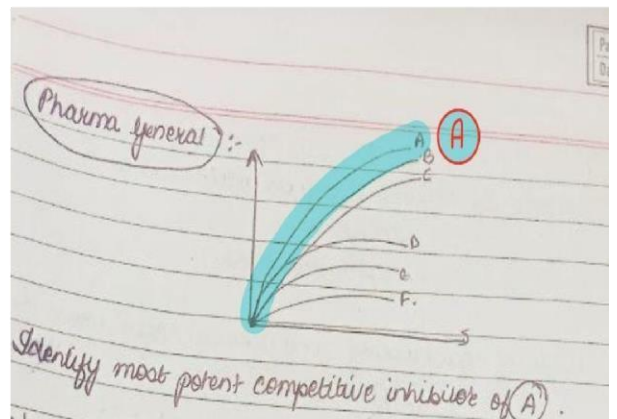 Pharma general :-
A
A
B
C
D
e
F.
S
Identify most potent competitive inhibitor of A